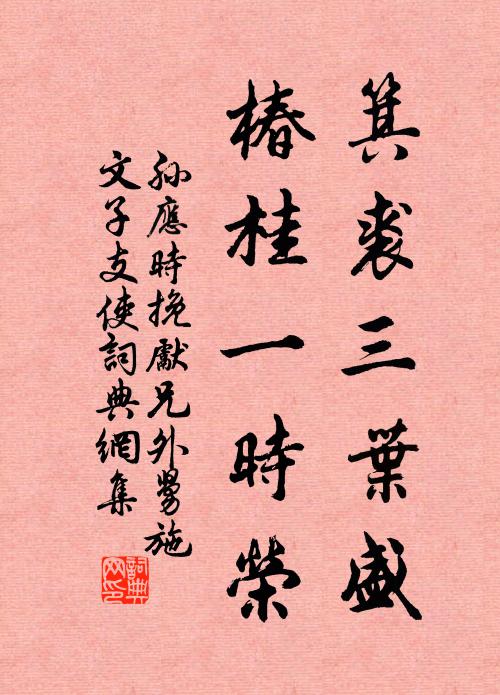 箕裘三葉盛
椿桂一時榮
孫應時挽獻兄外舅施
文子支使詞典網集
詞典
网印